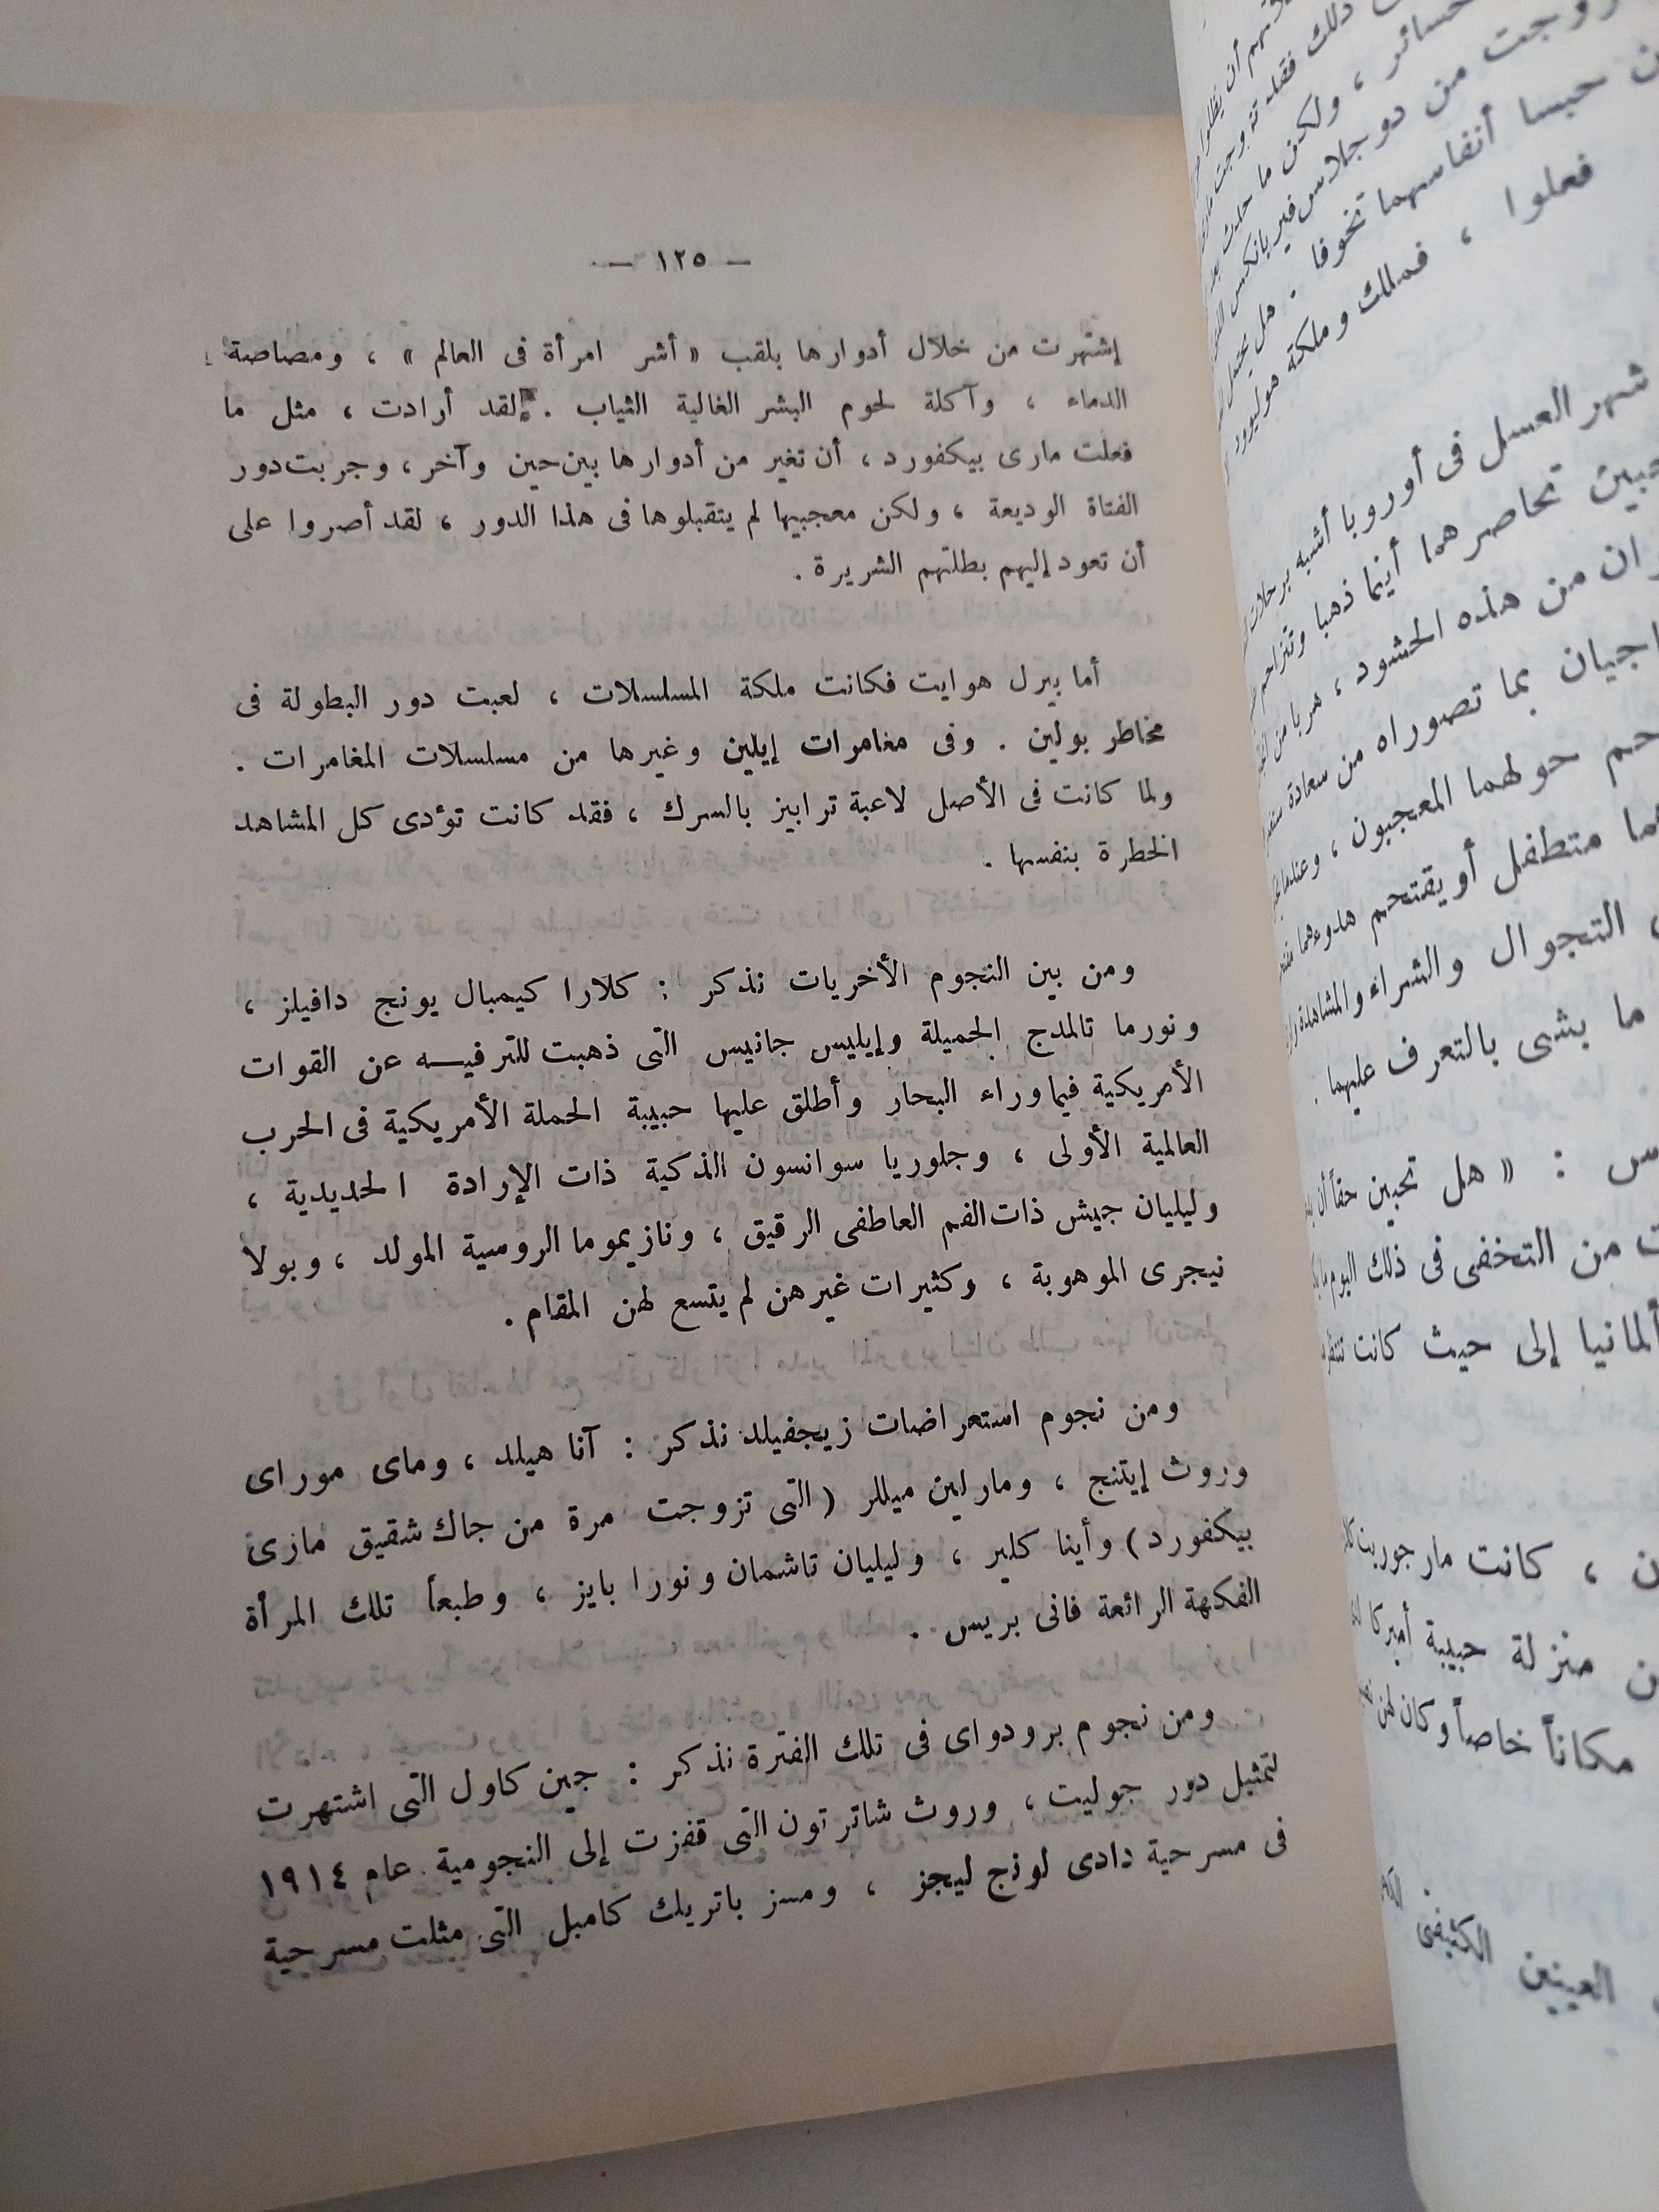 — ١٢٥ —
إشتهرت من خلال أدوارها بلقب « أشر امرأة فى العالم » ، ومصاصة
الدماء ، وآكلة لحوم البشر الغالية الثياب . لقد أرادت ، مثل ما
فعلت مارى بيكفورد ، أن تغير من أدوارها بين حين وآخر ، وجربت دور
الفتاة الوديعة ، ولكن معجبيها لم يتقبلوها فى هذا الدور ، لقد أصروا على
أن تعود إليهم بطلتهم الشريرة .
أما بيرل هوايت فكانت ملكة المسلسلات ، لعبت دور البطولة فى
مخاطر بولين . وفى مغامرات إيلين وغيرها من مسلسلات المغامرات .
ولما كانت فى الأصل لاعبة ترابيز بالسرك ، فقد كانت تؤدى كل المشاهد
الخطرة بنفسها .
ومن بين النجوم الأخريات نذكر : كلارا كيمبال يونج دافيلز ،
ونورما تالمدج الجميلة وإيليس جانيس التى ذهبت للترفيـــه عن القوات
الأمريكية فيما وراء البحار وأطلق عليها حبيبة الحملة الأمريكية فى الحرب
العالمية الأولى ، وجلوريا سوانسون الذكية ذات الإرادة الحديدية ،
وليليان جيش ذات الفم العاطفى الرقيق ، ونازيموما الروسية المولد ، وبولا
نيجرى الموهوبة ، وكثيرات غيرهن لم يتسع لهن المقام .
ومن نجوم استعراضات زيجفيلد نذكر : آنا هيلد ، وماى موراى
وروث إيتنج ، ومارلين ميللر ( التى تزوجت مرة من جاك شقيق مازى
بيكفورد ) وأينا كلير ، وليليان تاشمان ونورا بايز ، وطبعاً تلك المرأة
الفكهة الرائعة فانى بريس .
ومن نجوم برودواى فى تلك الفترة نذكر : جين كاول التى اشتهرت
لتمثيل دور جوليت ، وروث شاترتون التى قفزت إلى النجومية عام ١٩١٤
فى مسرحية دادى لونج ليجز ، ومسز باتريك كامبل التى مثلت مسرحية
ذلك فقد
حسائر ، ولكن ما حدث
من دوجلاس فيربانكس
حبسا أنفاسهما تخوفا . هل
فعلوا ، فملك وملكة هوليوود
شهر العسل فى أوروبا أشبه برحلات
تحاصرهما أينما ذهبا وتزاحم
من هذه الحشود ، هربا من
بما تصوراه من سعادة
حولهما المعجبون ، وعندما
متطفل أو يقتحم هدوءهما
التجوال والشراء والمشاهدة
ما يشى بالتعرف عليهما .
: « هل تحبين حقاً أن
من التخفى فى ذلك اليوم
ألمانيا إلى حيث كانت
، كانت مارجوريت
منزلة حبيبة أميركا
مكاناً خاصاً وكان لهن
العينين